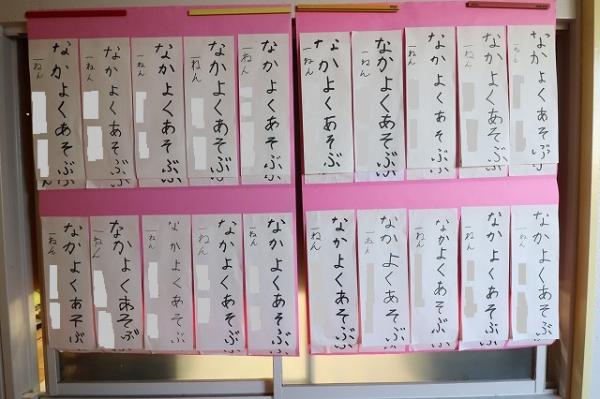 なかよくあそぶ
一ねん
なかよくあそぶ
一ねん
なかよくあそぶ
一ねん
なかよくあそぶ
一ねん
なかよくあそぶ
一ねん
なかよくあそぶ
一ねん
なかよくあそぶ
一ねん
なかよくあそぶ
一ねん
なかよくあそぶ
一ねん
なかよくあそぶ
一ねん
なかよくあそぶ
一ねん
なかよくあそぶ
一ねん
なかよくあそぶ
一ねん
なかよくあそぶ
一ねん
なかよくあそぶ
一ねん
なかよくあそぶ
一ねん
なかよくあそぶ
一ねん
なかよくあそぶ
一ねん
なかよくあそぶ
一ねん
なかよくあそぶ
一ねん